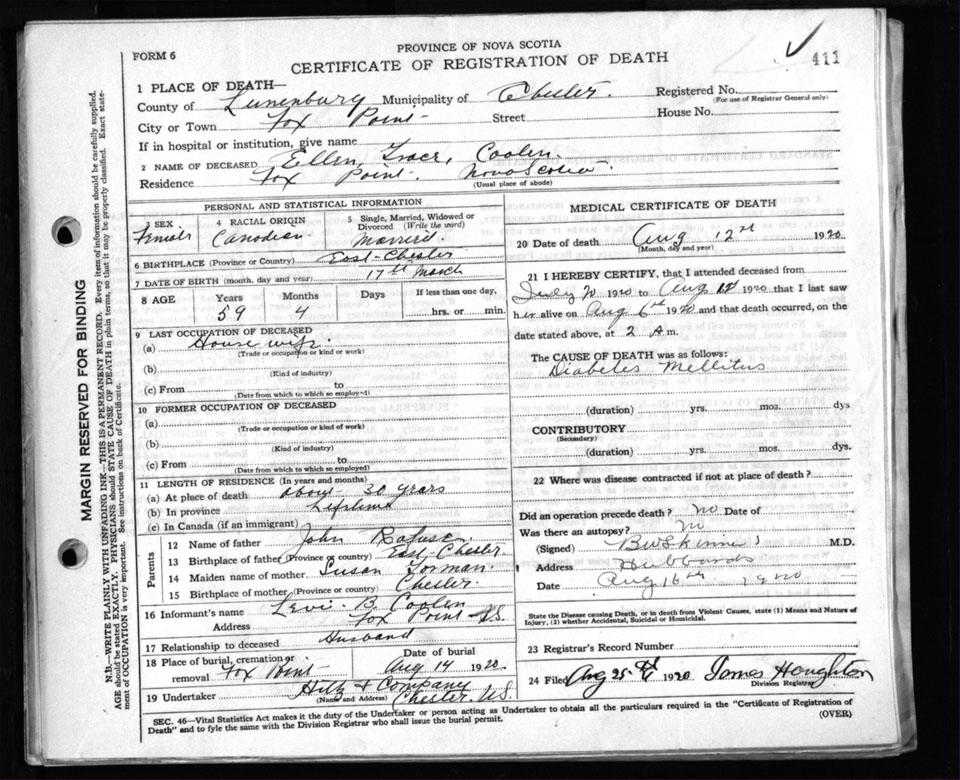 FORM 6
PROVINCE OF NOVA SCOTIA
CERTIFICATE OF REGISTRATION OF DEATH
411
1 PLACE OF DEATH—
County of Lunenburg Municipality of Chester. Registered No.
(For use of Registrar General only)
City or Town Fox Point Street House No.
If in hospital or institution, give name
2 NAME OF DECEASED Ellen, Coolen
Residence Fox Point. Nova Scotia
(Usual place of abode)
PERSONAL AND STATISTICAL INFORMATION
3 SEX Female
4 RACIAL ORIGIN Canadian
5 Single, Married, Widowed or Divorced (Write the word) Married
6 BIRTHPLACE (Province or Country) East-Chester
7 DATE OF BIRTH (month, day and year) 17th March
8 AGE Years Months Days If less than one day,
59 4 hrs. or min.
9 LAST OCCUPATION OF DECEASED
(a) House wife.
(Trade or occupation or kind of work)
(b)
(Kind of industry)
(c) From to
(Date from which to which so employed)
10 FORMER OCCUPATION OF DECEASED
(a)
(Trade or occupation or kind of work)
(b)
(Kind of industry)
(c) From to
(Date from which to which so employed)
11 LENGTH OF RESIDENCE (In years and months)
(a) At place of death about 30 years
(b) In province Lifetime
(c) In Canada (if an immigrant)
Parents
12 Name of father John Rafuse
13 Birthplace of father (Province or country) East-Chester.
14 Maiden name of mother Susan
15 Birthplace of mother (Province or country) Chester.
16 Informant's name Levi B. Coolen
Address Fox Point N.S.
17 Relationship to deceased Husband
18 Place of burial, cremation or removal Fox Point Date of burial Aug 14 1920.
19 Undertaker Hiltz & Company
(Name and Address) Chester. N.S.
MEDICAL CERTIFICATE OF DEATH
20 Date of death Aug 12th 1920
(Month, day and year)
21 I HEREBY CERTIFY, that I attended deceased from
July 20 1920 to Aug 12th 1920 that I last saw
her alive on Aug 6th 1920 and that death occurred, on the
date stated above, at 2 A m.
The CAUSE OF DEATH was as follows:
Diabetes Mellitus
(duration) yrs. mos. dys
CONTRIBUTORY
(Secondary)
(duration) yrs. mos. dys.
22 Where was disease contracted if not at place of death?
Did an operation precede death? no Date of
Was there an autopsy? no
(Signed) B W Skinner M.D.
Address Hubbards
Date Aug 16th 1920
State the Disease causing Death, or in death from Violent Causes, state (1) Means and Nature of
Injury, (2) whether Accidental, Suicidal or Homicidal.
23 Registrar's Record Number
24 Filed Aug 25th 1920 James Houghton
Division Registrar
SEC. 46—Vital Statistics Act makes it the duty of the Undertaker or person acting as Undertaker to obtain all the particulars required in the "Certificate of Registration of
Death" and to fyle the same with the Division Registrar who shall issue the burial permit.
(OVER)
MARGIN RESERVED FOR BINDING
N.B.—WRITE PLAINLY WITH UNFADING INK—THIS IS A PERMANENT RECORD. Every item of information should be carefully supplied.
AGE should be stated EXACTLY. PHYSICIANS should STATE CAUSE OF DEATH in plain terms, so that it may be properly classified. Exact statement
of OCCUPATION is very important. See instructions on back of Certificate.